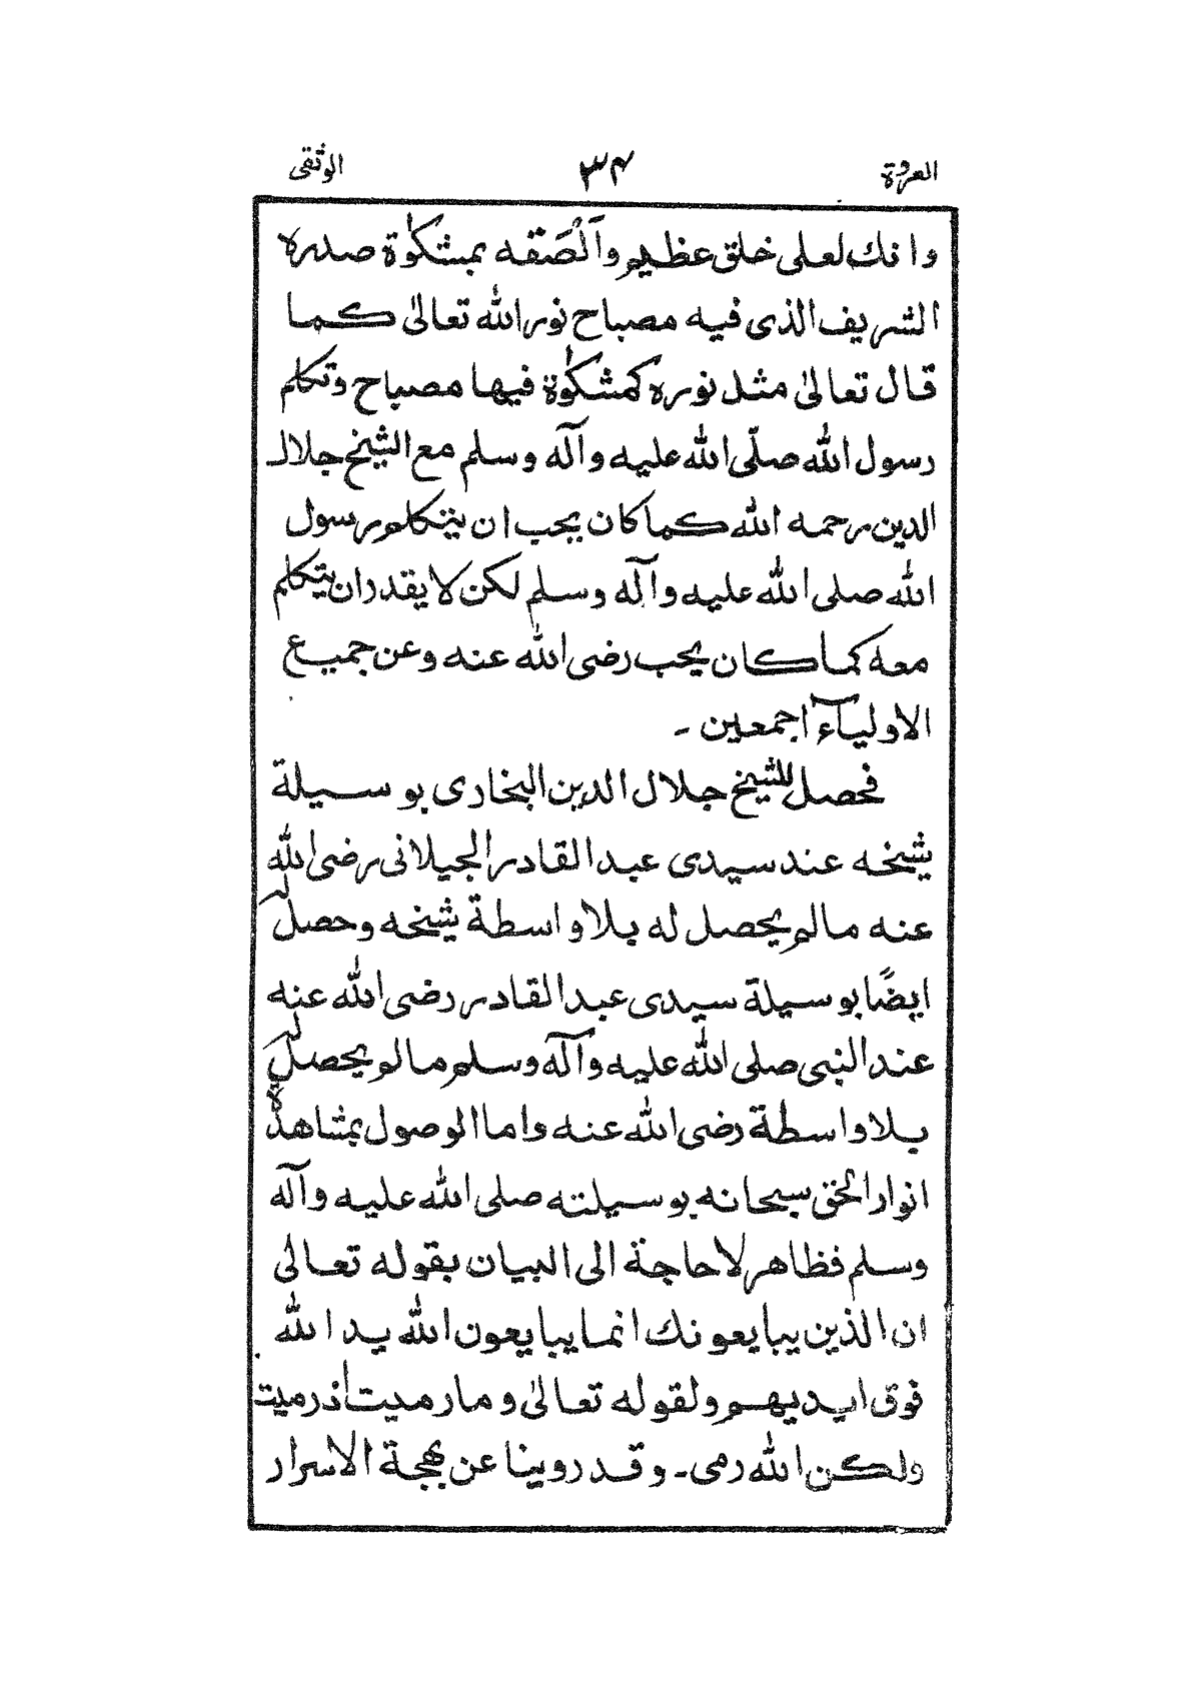 العروة ٣٤ الوثقى
وانك لعلى خلق عظيم وَاَلْصَقَه بمشكٰوة صدره
الشريف الذى فيه مصباح نور الله تعالىٰ كما
قال تعالىٰ مثل نوره كمشكٰوة فيها مصباح وتكلم
رسول الله صلّى الله عليه وآله وسلم مع الشيخ جلال
الدين رحمه الله كما كان يجب ان يتكلم رسول
الله صلى الله عليه وآله وسلم لكن لا يقدر ان يتكلم
معه كما كان يجب رضى الله عنه وعن جميع
الاولياۤء اجمعين ۔
فحصل للشيخ جلال الدين البخارى بوسيلة
شيخه عند سيدى عبد القادر الجيلانى رضى الله
عنه مالم يحصل له بلا واسطة شيخه وحصل له
ايضًا بوسيلة سيدى عبد القادر رضى الله عنه
عند النبى صلى الله عليه وآله وسلم مالم يحصل له
بلا واسطة رضى الله عنه واما الوصول بمشاهدة
انوار الحق سبحانه بوسيلته صلى الله عليه وآله
وسلم فظاهر لا حاجة الى البيان بقوله تعالىٰ
ان الذين يبايعونك انما يبايعون الله يد الله
فوق ايديهم ولقوله تعالىٰ وما رميت اذ رميت
ولكن الله رمى ۔ وقد روينا عن بهجة الاسرار